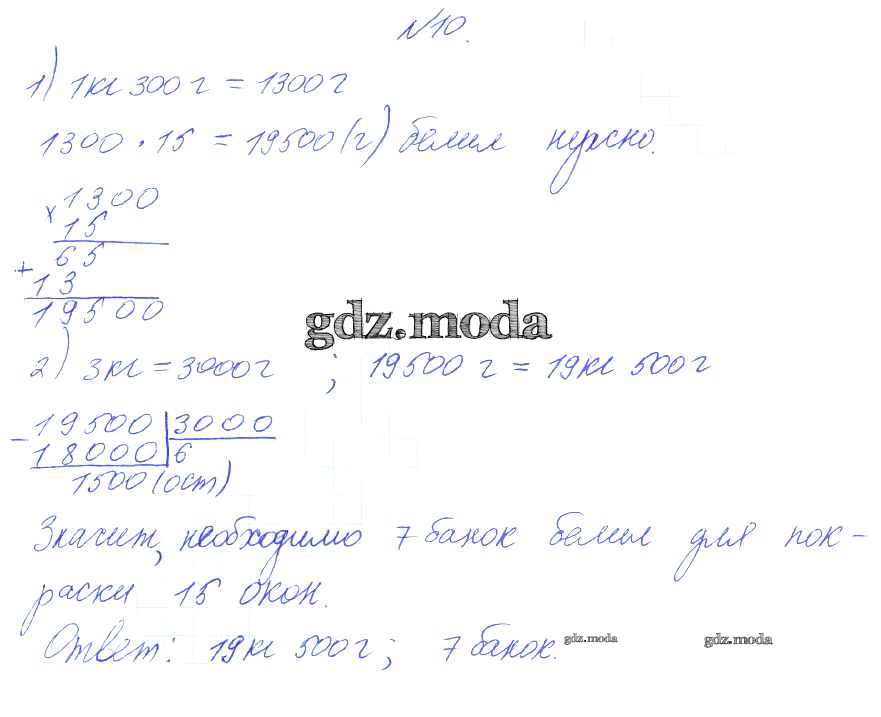 №10.
1) 1кг 300г = 1300г
1300 · 15 = 19500(г) белил нужно.
× 1300
15
65
+
13
19500
gdz.moda
2) 3кг = 3000г ; 19500 г = 19кг 500г
- 19500 | 3000
18000 | 6
1500 (ост)
Значит, необходимо 7 банок белил для пок-
раски 15 окон.
Ответ: 19кг 500г; 7 банок.
gdz.moda gdz.moda